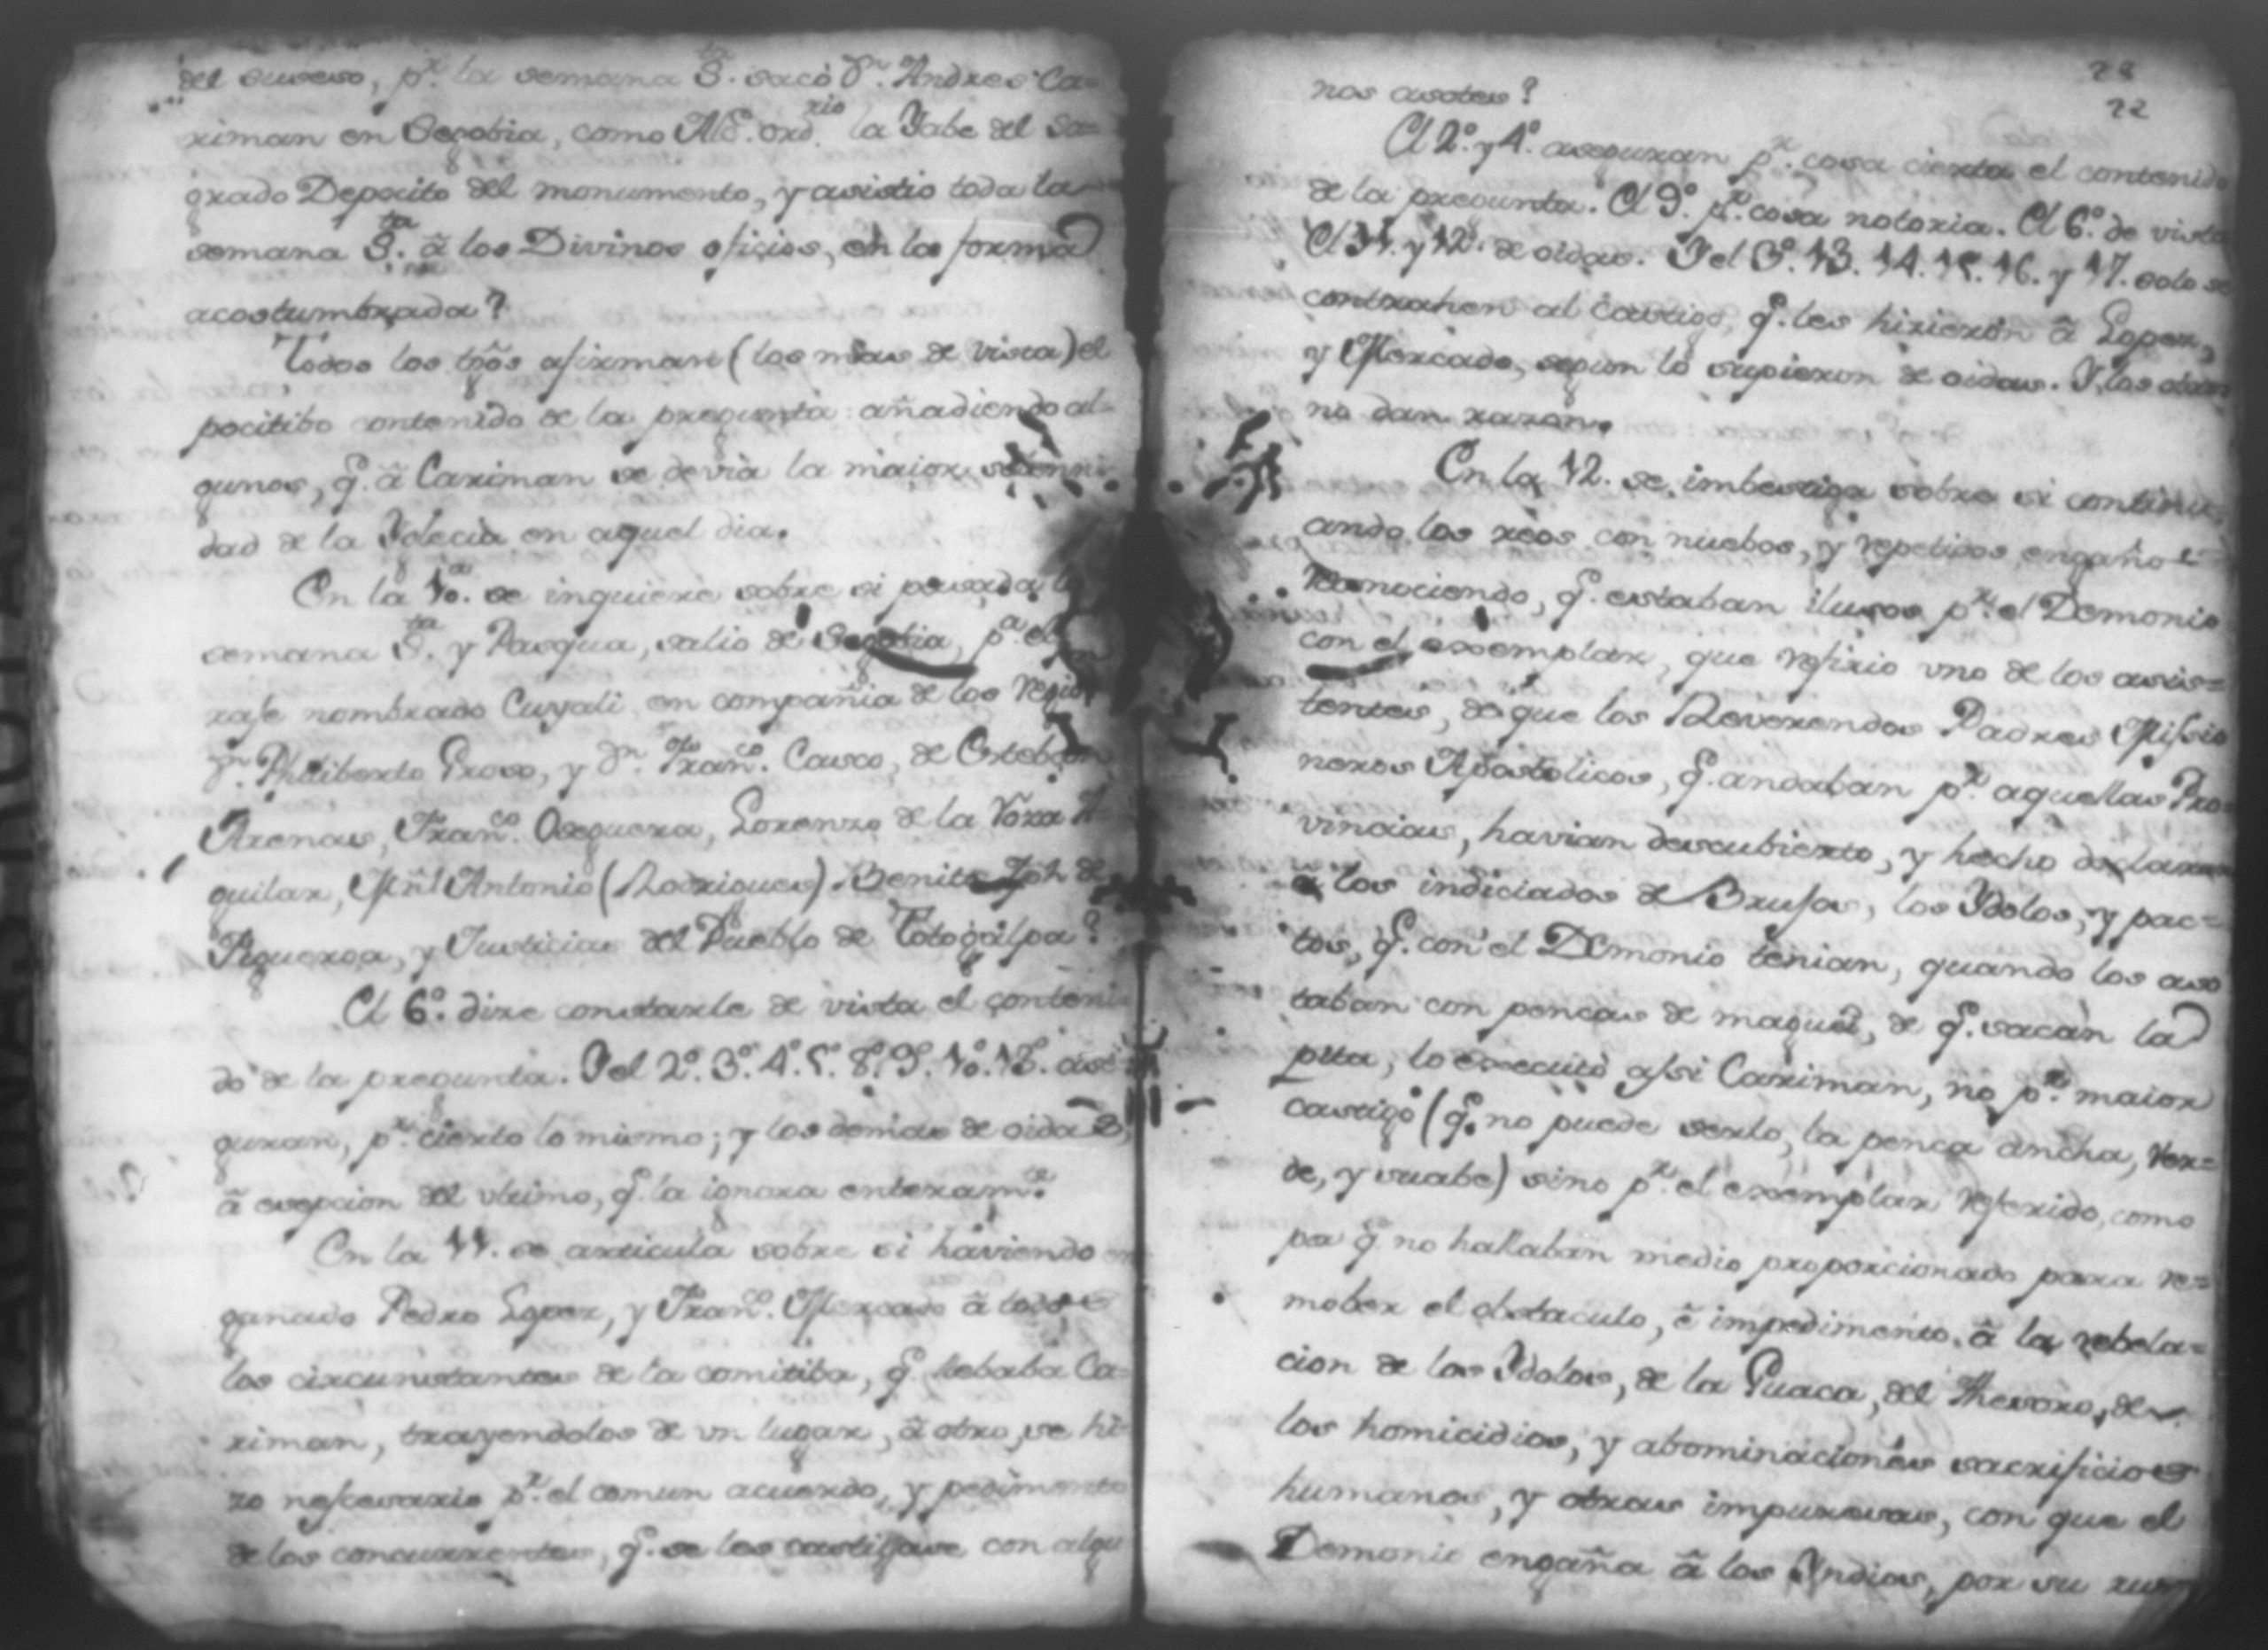 del suceso, pr. la semana Sta. sacò Dn. Andres Ca=
riman en Segobia, como Alce. ordrio. la Yabe del Sa=
grado Deposito del monumento, y asistio toda la
semana Sta. â los Divinos oficios, en la forma
acostumbrada?
Todos los tgõs afirman (los mas de vista) el
pocitibo contenido de la pregunta: añadiendo al-
gunos, q̃. â Cariman se devia la maior solemni
dad de la Yglecia en aquel dia.
En la 10a. se inquiere sobre si pasada la
semana Sta. y Pasqua, salio de Segobia, pa. el
rafe nombrado Cuyali en compañia de los
Dn. Philiberto Groso, y Dn. Franco. Casco, de Esteban
Arenas, Franco. Oseguera, Lorenzo de la Vora A
guilar, Mñl Antonio (Rodrigues) Benito de
Figueroa, y Justicias del Pueblo de Totogalpa?
El 6o. dixe constarle de vista el conteni
do de la pregunta. Y el 2o. 3o. 4o. 5. 8o. 9o. 10. 13. ase
guran, pr. cierto lo mismo; y los demas de oidas,
â exepcion del vltimo, q̃. la ignora enteramte.
En la 11. se articula sobre si haviendo en
gañado Pedro Lopez, y Franco. Mercado â todos
los circunstantes de la comitiba, q̃. llebaba Ca=
riman, trayendolos de vn lugar, â otro, se hi
zo nescesario pr. el comun acuerdo, y pedimento
de los concurrentes, q̃. se les castigase con algu
28
22
nos asotes?
El 2o. y 4o. aseguran pr. cosa cierta el contenido
de la pregunta. El 9o. pr. cosa notoria. El 6o. de vista
El 11. y 12. de oidas. Y el 3o. 13. 14. 15. 16. y 17. solo se
contrahen al castigo, q̃. les hizieron â Lopez,
y Mercado, segun lo supieron de oidas. Y los otros
no dan razon.
En la 12. se imbestiga sobre si continu
ando los reos con nuebos, y repetidos engaños
reconociendo, q̃. estaban ilusos pr. el Demonio
con el exemplar, que refirio vno de los asis=
tentes, de que los Reverendos Padres Missio
neros Apostolicos, q̃. andaban pr. aquellas Pro=
vincias, havian descubierto, y hecho declarar
a los indiciados de Brujos, los Ydolos, y pac=
tos, q̃. con el Demonio tenian, quando los aso
taban con pencas de maguei, de q̃. sacan la
pita, lo executò assi Cariman, no pr. maior
castigo (q̃. no puede serlo, la penca ancha, ver=
de, y suabe) sino pr. el exemplar referido, como
por q̃. no hallaban medio proporcionado para re=
mober el obstaculo, ê impedimento â la rebela=
cion de los Ydolos, de la Guaca, del Thesoro, de
los homicidios, y abominaciones sacrificios
humanos, y otras impuresas, con que el
Demonio engaña â los Yndios, por su rus